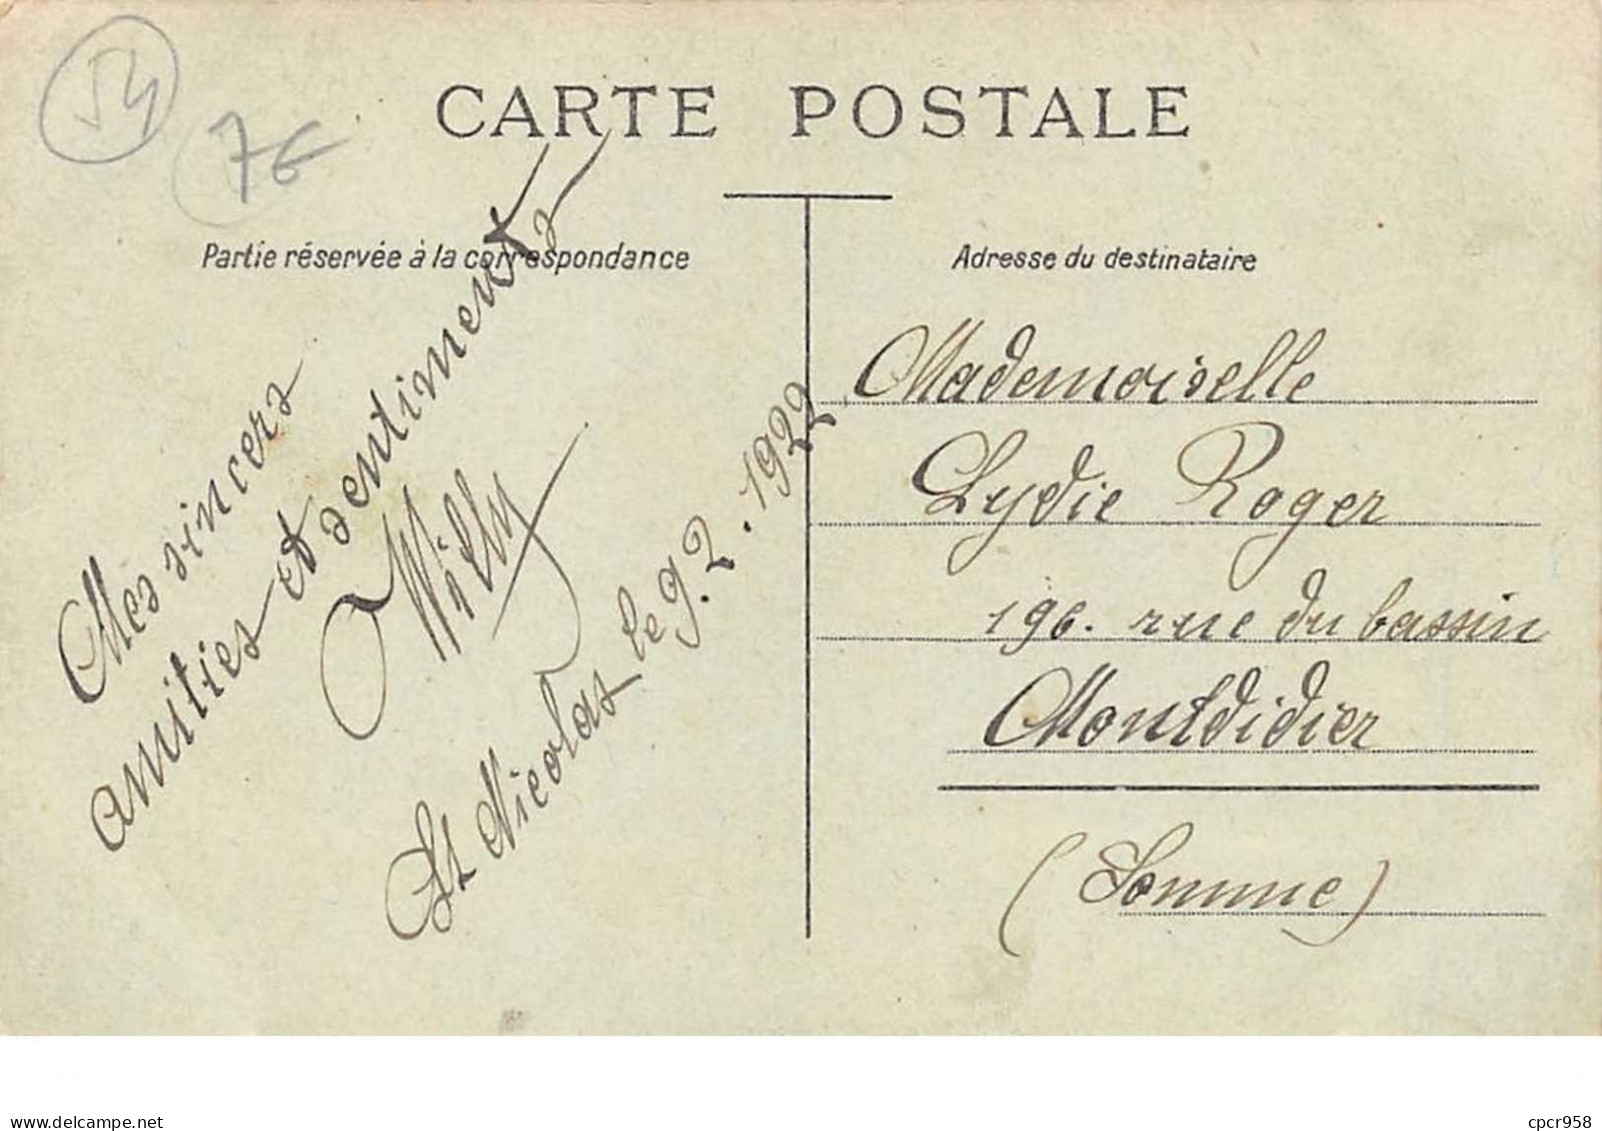 54
7€
CARTE POSTALE
Partie réservée à la correspondance
Adresse du destinataire
Mes sincers
amitiés et sentiments
Willy
St Nicolas le 9.2.1922
Mademoiselle
Lydie Roger
196. rue du bassin
Montdidier
(Somme)
www.delcampe.net
cpcr958